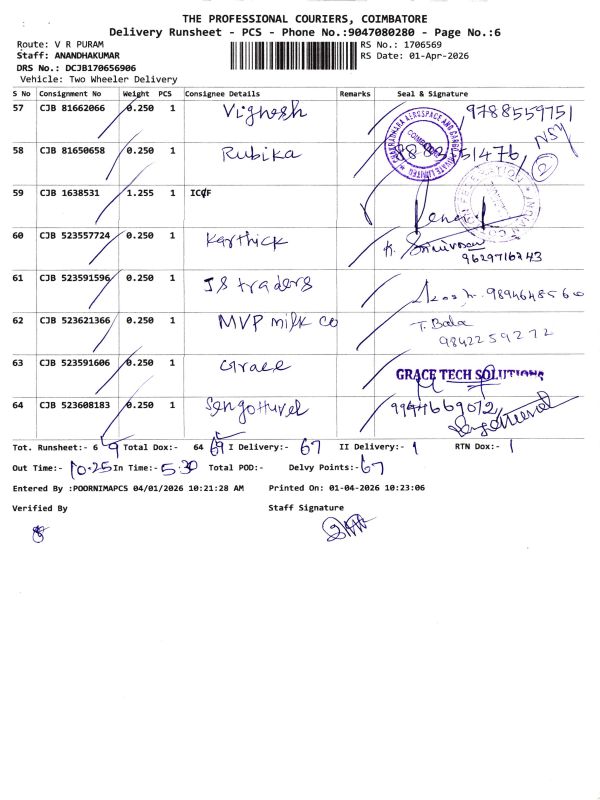 THE PROFESSIONAL COURIERS, COIMBATORE
Delivery Runsheet - PCS - Phone No.:9047080280 - Page No.:6
Route: V R PURAM RS No.: 1706569
Staff: ANANDHAKUMAR RS Date: 01-Apr-2026
DRS No.: DCJB170656906
Vehicle: Two Wheeler Delivery
S No Consignment No Weight PCS Consignee Details Remarks Seal & Signature
57 CJB 81662066 0.250 1 Vignesh 9788559751
58 CJB 81650658 0.250 1 Rubika
59 CJB 1638531 1.255 1 ICCF
60 CJB 523557724 0.250 1 Karthick K. Srinivosan
9629716243
61 CJB 523591596 0.250 1 JS traders
62 CJB 523621366 0.250 1 MVP milk co T. Bala
9842259272
63 CJB 523591606 0.250 1 Grace GRACE TECH SOLUTIONS
64 CJB 523608183 0.250 1 Sengottuvel 9944669072
Tot. Runsheet:- 69 Total Dox:- 64 69 I Delivery:- 67 II Delivery:- 1 RTN Dox:- 1
Out Time:- 10.25 In Time:- 5.30 Total POD:- Delvy Points:- 67
Entered By :POORNIMAPCS 04/01/2026 10:21:28 AM Printed On: 01-04-2026 10:23:06
Verified By Staff Signature